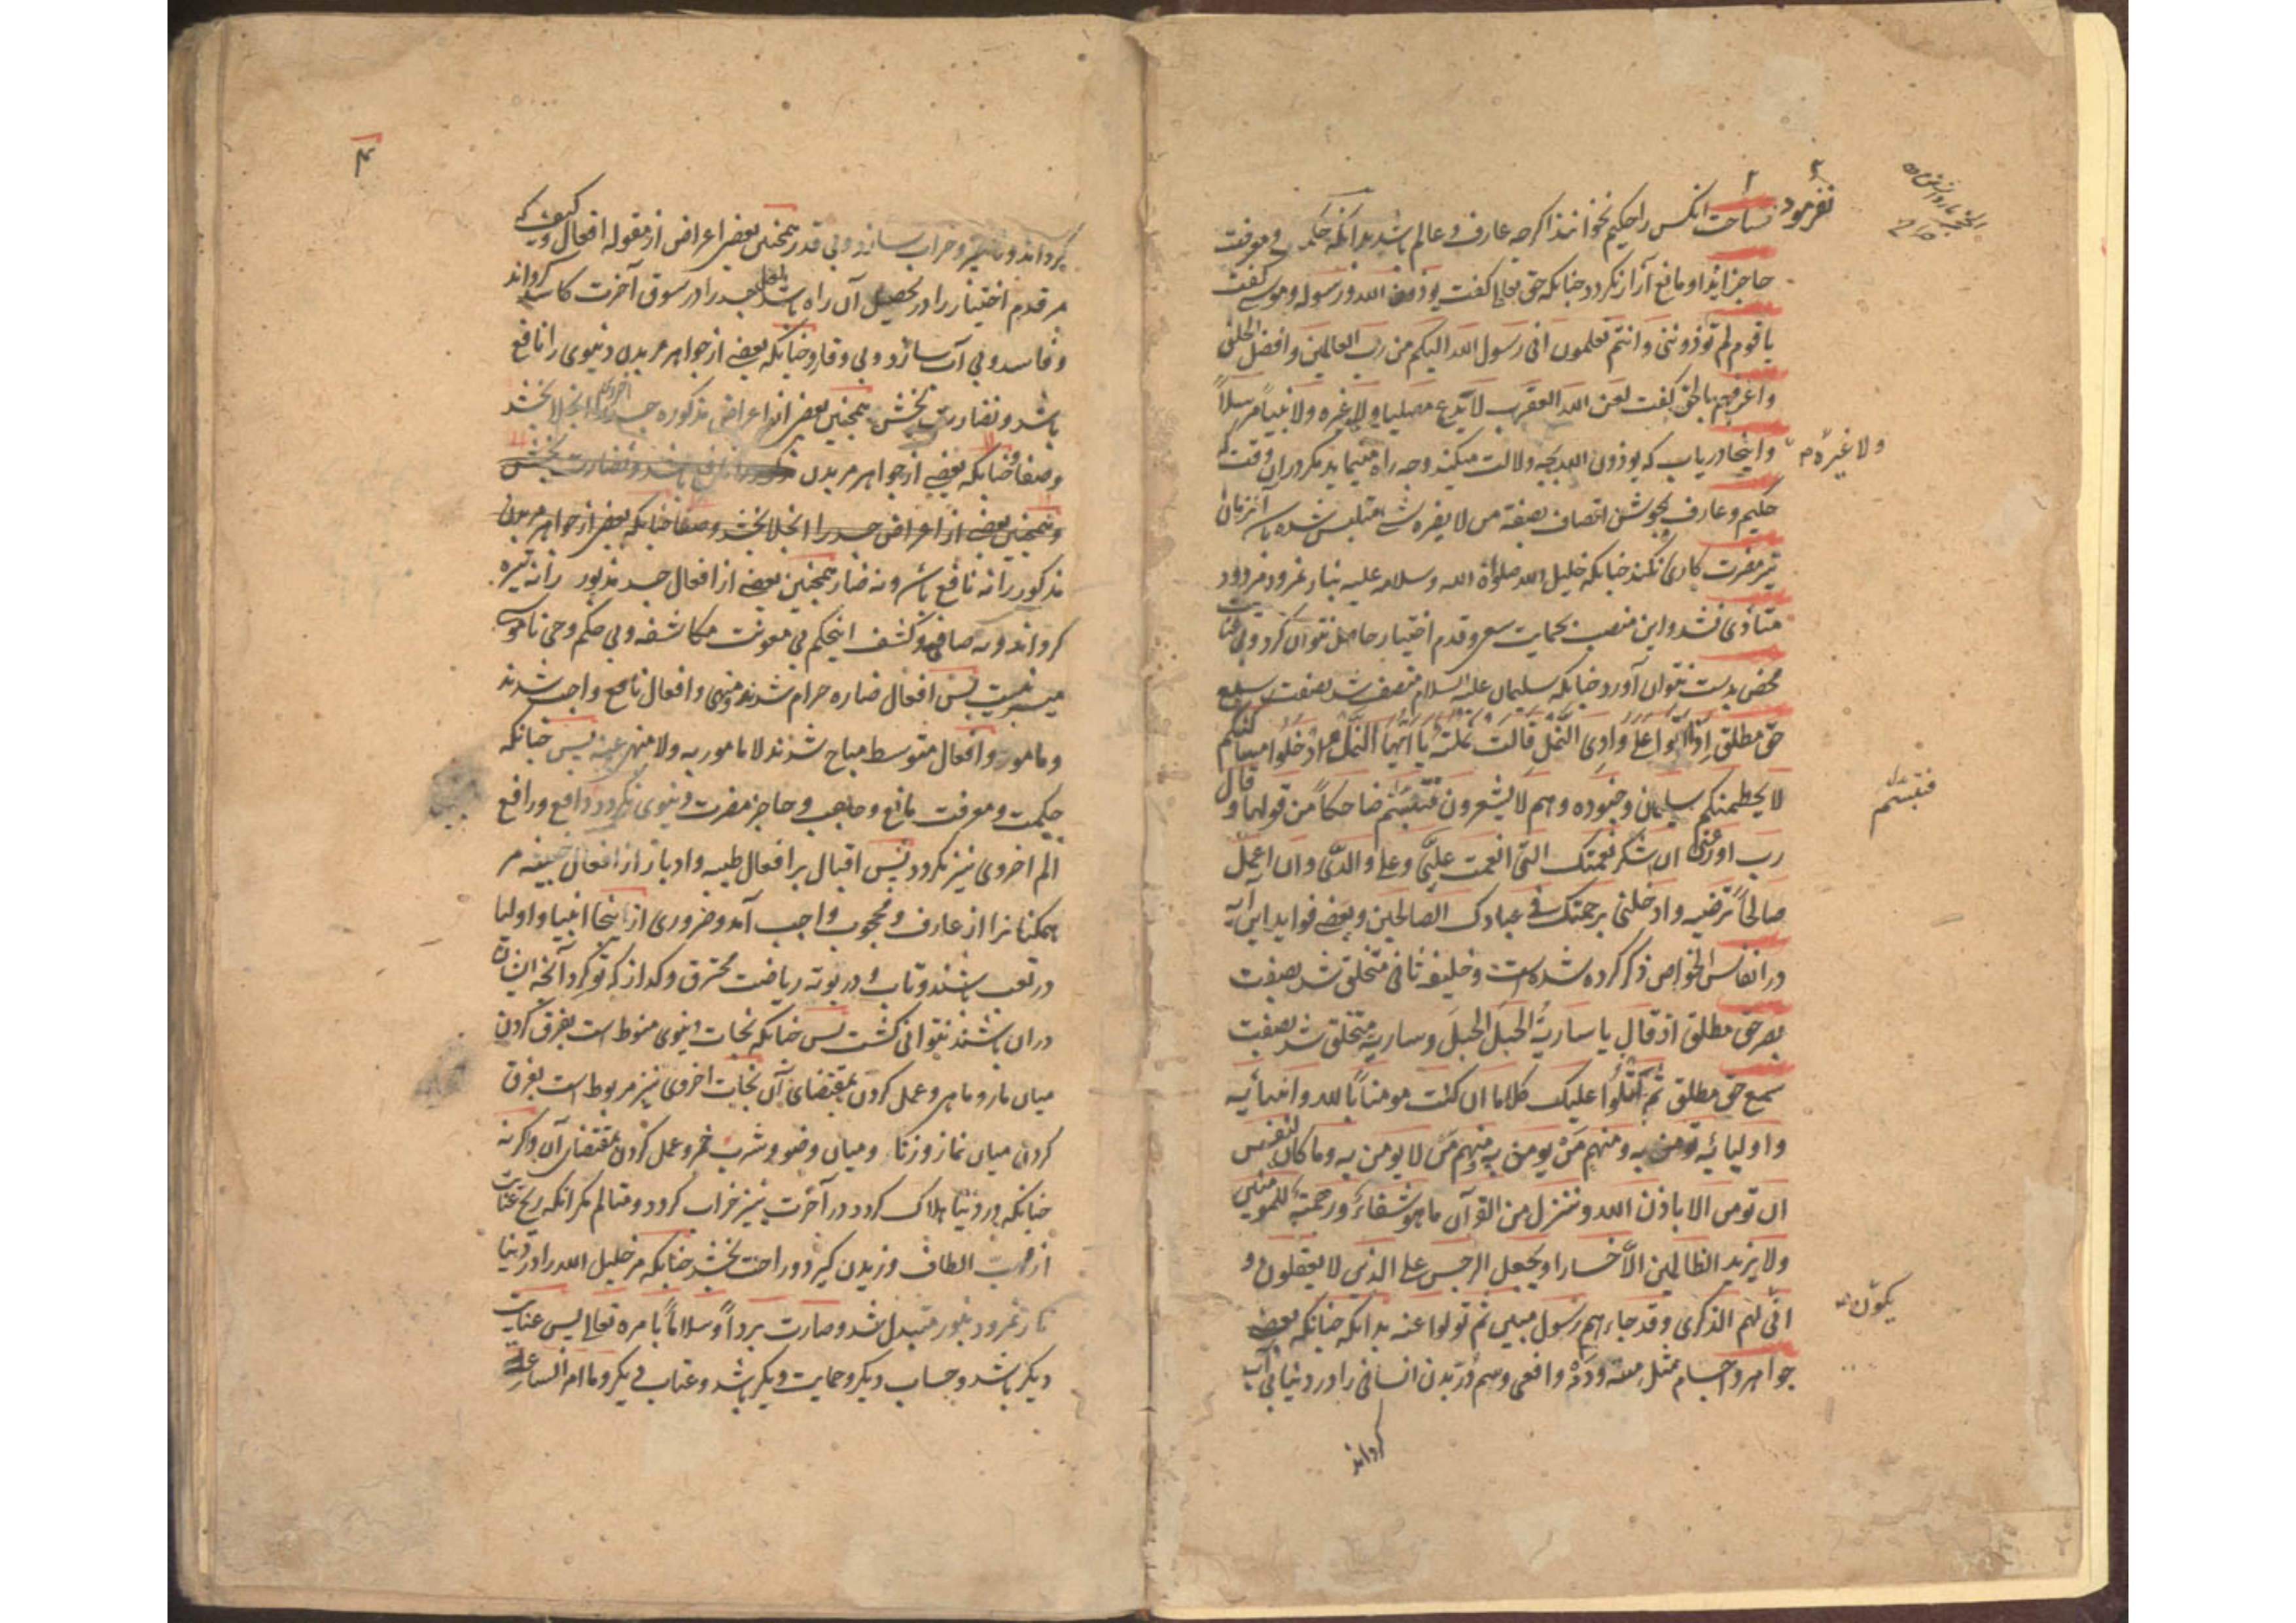 نفرمود
انکس را حکیم نخوانند اکرچه عارف و عالم باشد بدانکه حکمت و معرفت
حاجز ایذا و مانع آزار نکردد چنانکه حق تعالی کفت یوذون الله و رسوله و موسی کفت
یا قوم لم توذوننی و انتم تعلمون انی رسول الله الیکم من رب العالمین و افضل الخلق
و اعرفهم بالحق کفت لعن الله العقرب لا تدع مصلیا و لا غیره و لا نبیاً مرسلاً
و اینجا دریاب که یوذون الله بچه دلالت میکند و چه راه مینماید مکر دران وقت که
حکیم و عارف بجوشش اتصاف بصفة من لا یضره شی متلبس شده باشد آنزمان
تیر مضرت کاری نکند چنانکه خلیل الله صلواة الله و سلامه علیه بنار نمرود مردود
متاذی نشد و این منصب بحمایت سعی و قدم اختیار حاصل نتوان کرد و بی عنایت
محض بدست نتوان آورد چنانکه سلیمان علیه السلام متصف شد بصفت سمع
حق مطلق اذا اتوا علی وادی النمل قالت نملة یا ایها النمل ادخلوا مساکنکم
لا یحطمنکم سلیمان و جنوده و هم لا یشعرون فتبسم ضاحکاً من قولها و قال
رب اوزعنی ان اشکر نعمتک التی انعمت علیّ و علی والدیّ و ان اعمل
صالحاً ترضیه و ادخلنی برحمتک فی عبادک الصالحین و بعضی فواید این آیه
در انفاس الخواص ذکر کرده شده است و خلیفه ثانی متخلق شد بصفت
بصر حق مطلق اذ قال یا ساریةُ الجبلَ الجبلَ و ساریه متخلق شد بصفت
سمع حق مطلق ثم اتلوا علیک کلاما ان کنت مومناً بالله و انبیائه
و اولیائه تومن به و منهم مَن یومن به و منهم مَن لا یومن به و ما کان لنفس
ان تومن الا باذن الله و ننزل من القرآن ما هو شفاء و رحمة للمومنین
و لا یزید الظالمین الاّ خسارا و یجعل الرجس علی الذین لا یعقلون و
انّی لهم الذکری و قد جاءهم رسول مبین ثم تولوا عنه بدانکه چنانکه بعضی
جواهر و اجسام مثل و افعی و سم در بدن انسانی را در دنیا بی آب
کرداند
و لا غیره م
فتبسم
یکون
۴
کرداند و تیره و خراب سازد و بی قدر همچنین بعضی اعراض از مقوله افعال و کیف که
مر قدم اختیار را در تحصیل آن راه باشد جسد را در سوق آخرت کاسد کرداند
و فاسد و بی آب سازد و بی وقار و چنانکه بعضی از جواهر مر بدن دنیوی را نافع
باشد و نضارت بخشد همچنین بعضی از اعراض مذکوره جسد را انجلا بخشد
و صفا و چنانکه بعضی از جواهر مر بدن مذکور را نافع باشد و نضارت بخشد
و همچنین بعضی از اعراض جسد را انجلا بخشد و صفا چنانکه بعضی از جواهر مر بدن
مذکور را نه نافع باشد و نه ضار همچنین بعضی از افعال جسد مذبور را نه تیره
کرداند و نه صافی و کشف اینحکم بی معونت مکاشفه و بی حکم وحی ناموسی
میسر نیست پس افعال ضاره حرام شدند و منهی و افعال نافع واجب شدند
و مامور و افعال متوسط مباح شدند لا مامور به و لا منهی عنه پس چنانکه
حکمت و معرفت مانع و حاجب و حاجز مضرت دنیوی نکردد دافع و رافع
الم اخروی نیز نکردد پس اقبال بر افعال طیبه و ادبار از افعال خبیثه مر
همکنانرا از عارف و محجوب واجب آمد و ضروری از اینجا انبیا و اولیا
در تعب باشند و تا در بوته ریاضت محترق و کداز کرد آنچه ایشان
دران باشند نتوانی کشت پس چنانکه نجات دنیوی منوط است بفرق کردن
میان مار و ماهی و عمل کردن بمقتضای آن نجات اخروی نیز مربوط است بفرق
کردن میان نماز و زنا و میان وضو و شرب خمر و عمل کردن بمقتضای آن و اکر نه
چنانکه در دنیا هلاک کردد در آخرت نیز خراب کردد و متالم مکر انکه ریح عنایت
از مهب الطاف وزیدن کیرد و راحت بخشد چنانکه مر خلیل الله را در دنیا
نار نمرود بنور متبدل شد و صارت برداً و سلاماً بامره تعالی پس عنایت
دیکر باشد و حساب دیکر و حمایت دیکر باشد و عتاب دیکر و ما امر الساعة